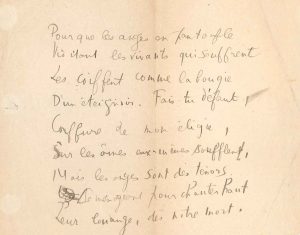 Pourque les anges en pantoufle
Visitant les vivants qui souffrent
Les coiffent comme la bougie
D'un éteignoir. Fais-tu défaut,
Coiffure de mon élegie,
Sur les âmes eux-mêmes soufflent,
Mais les anges sont des ténors
pour chanter
Leur louange, dès notre mort.